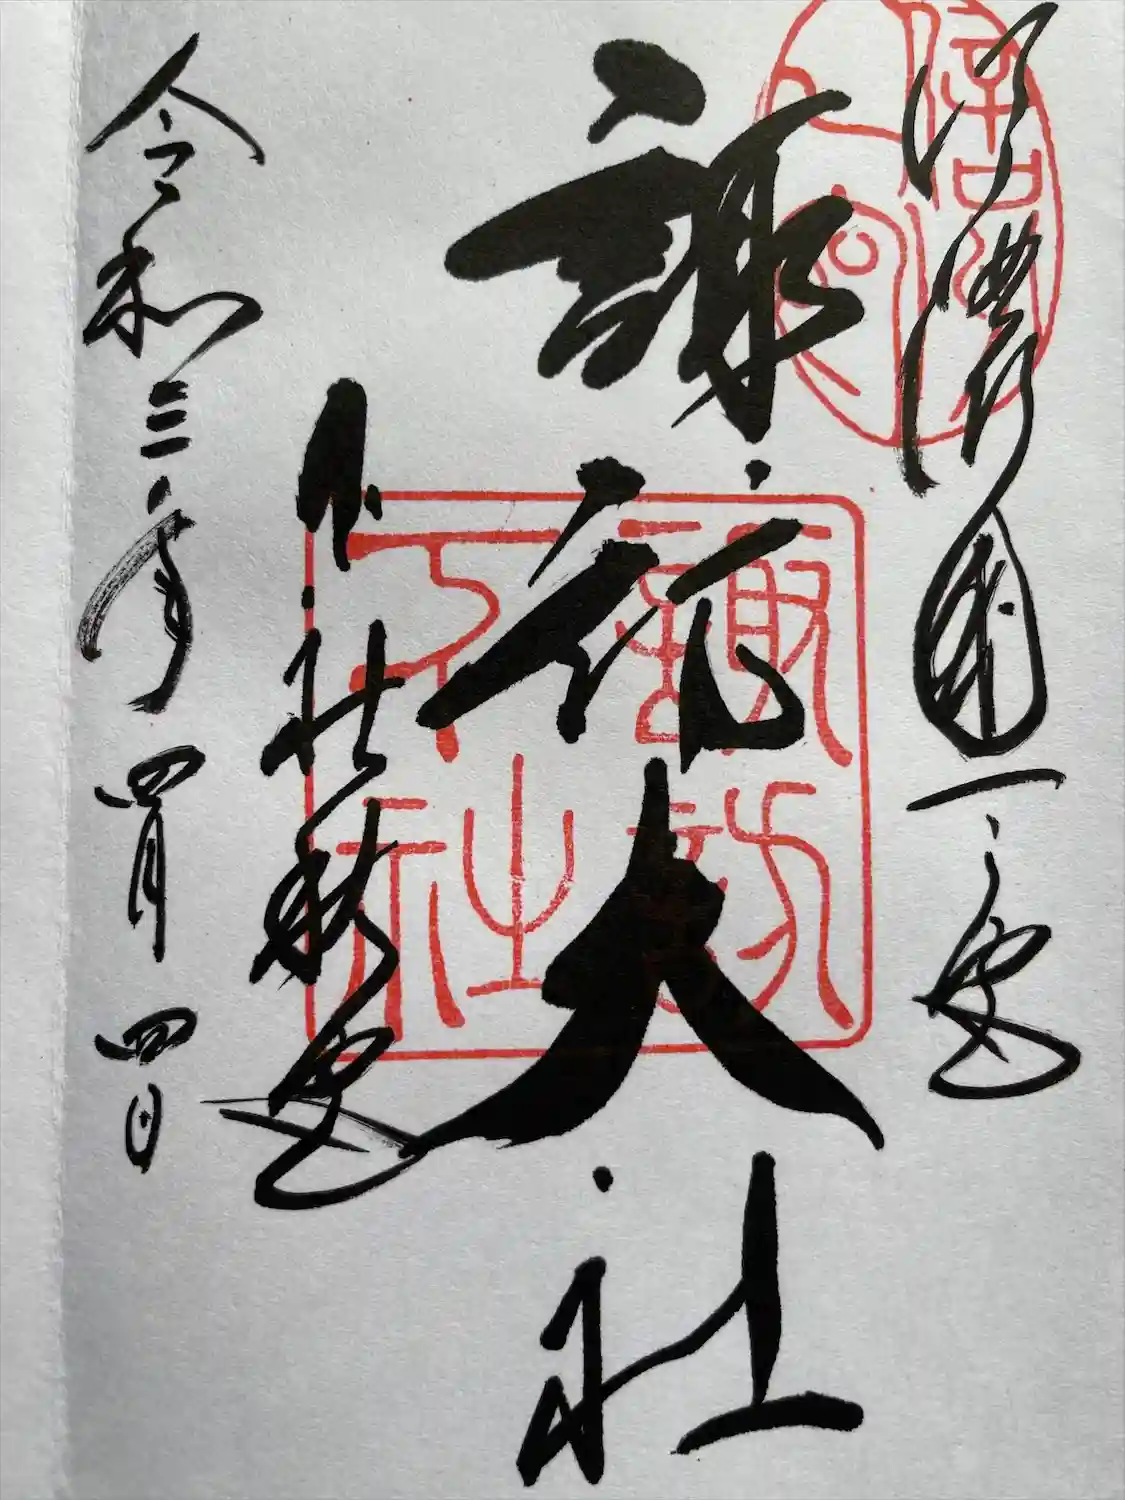 信濃國一之宮
諏訪大社
下社秋宮
令和三年四月四日
諏訪大社下社之印